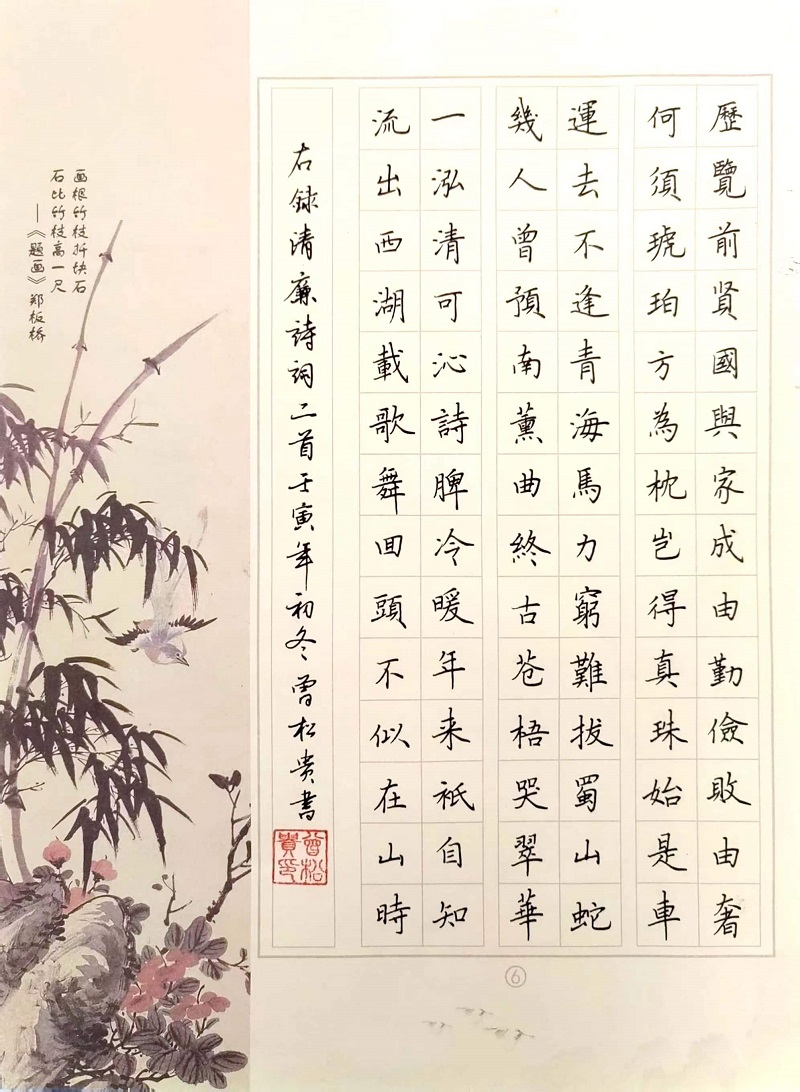 歷覽前賢國與家成由勤儉敗由奢
何須琥珀方為枕岂得真珠始是車
運去不逢青海馬力窮難拔蜀山蛇
幾人曾預南薰曲終古苍梧哭翠華
一泓清可沁詩脾冷暖年来祇自知
流出西湖載歌舞回頭不似在山時
右録清廉詩词二首壬寅年初冬曾松贵書
曾松貴印
画根竹枝扦块石
石比竹枝高一尺
——《题画》郑板桥
6